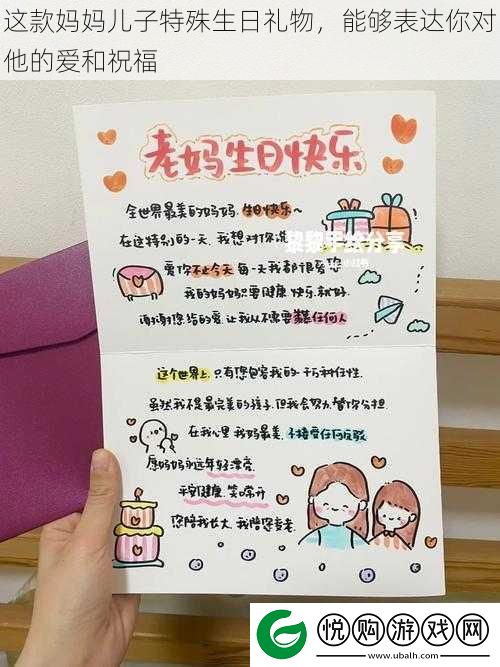 这款妈妈儿子特殊生日礼物，能够表达你对
他的爱和祝福
老妈生日快乐
全世界最美的妈妈 生日快乐~
在这特别的一天 我想对你说
黎黎手绘分享
爱你不止今天 每一天我都很爱您
我的妈妈只要健康 快乐 就好
谢谢您给的爱 让我从不需要羡慕任何人
这个世界上 只有您包容我的一切和任性
虽然我不是最完美的孩子 但我会努力替你分担
在我心里 我妈最美 不接受任何反驳
愿妈妈永远年轻漂亮
平安健康 笑口常开
您陪我长大 我陪您变老
悦购游戏网
www.ubalh.com